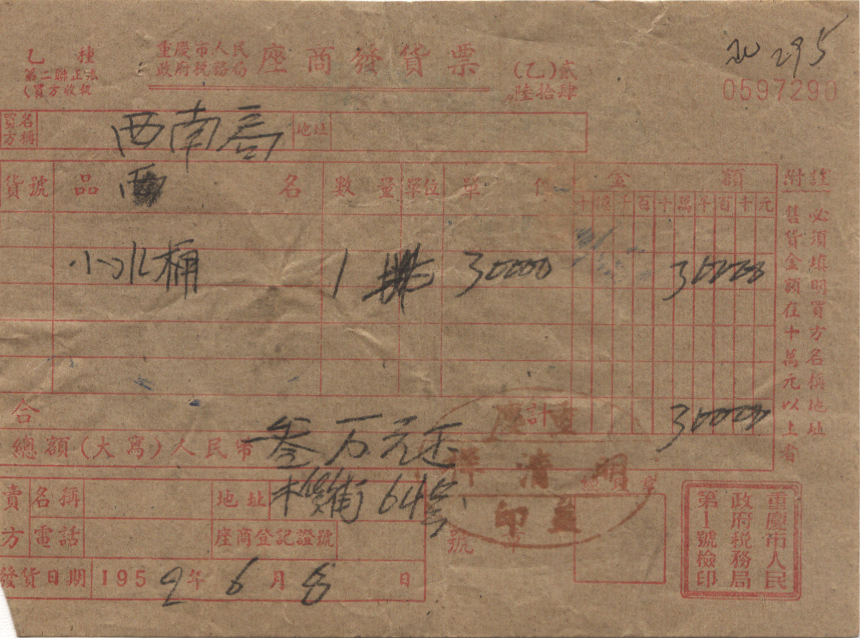 乙種
第二聯正張
(買方收執
重慶市人民
政府稅務局
座商發貨票
(乙)貳
陸拾肆
295
0597290
買方 名稱 西南 地址
貨號 品名 數量 單位 單價 金額 附註
十億千百十萬千百十元
小水桶 1 挑 30000 30000
必須填明買方名稱地址
售貨金額在十萬元以上者
合計 30000
總額(大寫)人民幣 叁万元正
賣方 名稱 地址 64號
電話 座商登記證號
發貨日期 1952年6月8日
重慶市人民
政府稅務局
第1號檢印